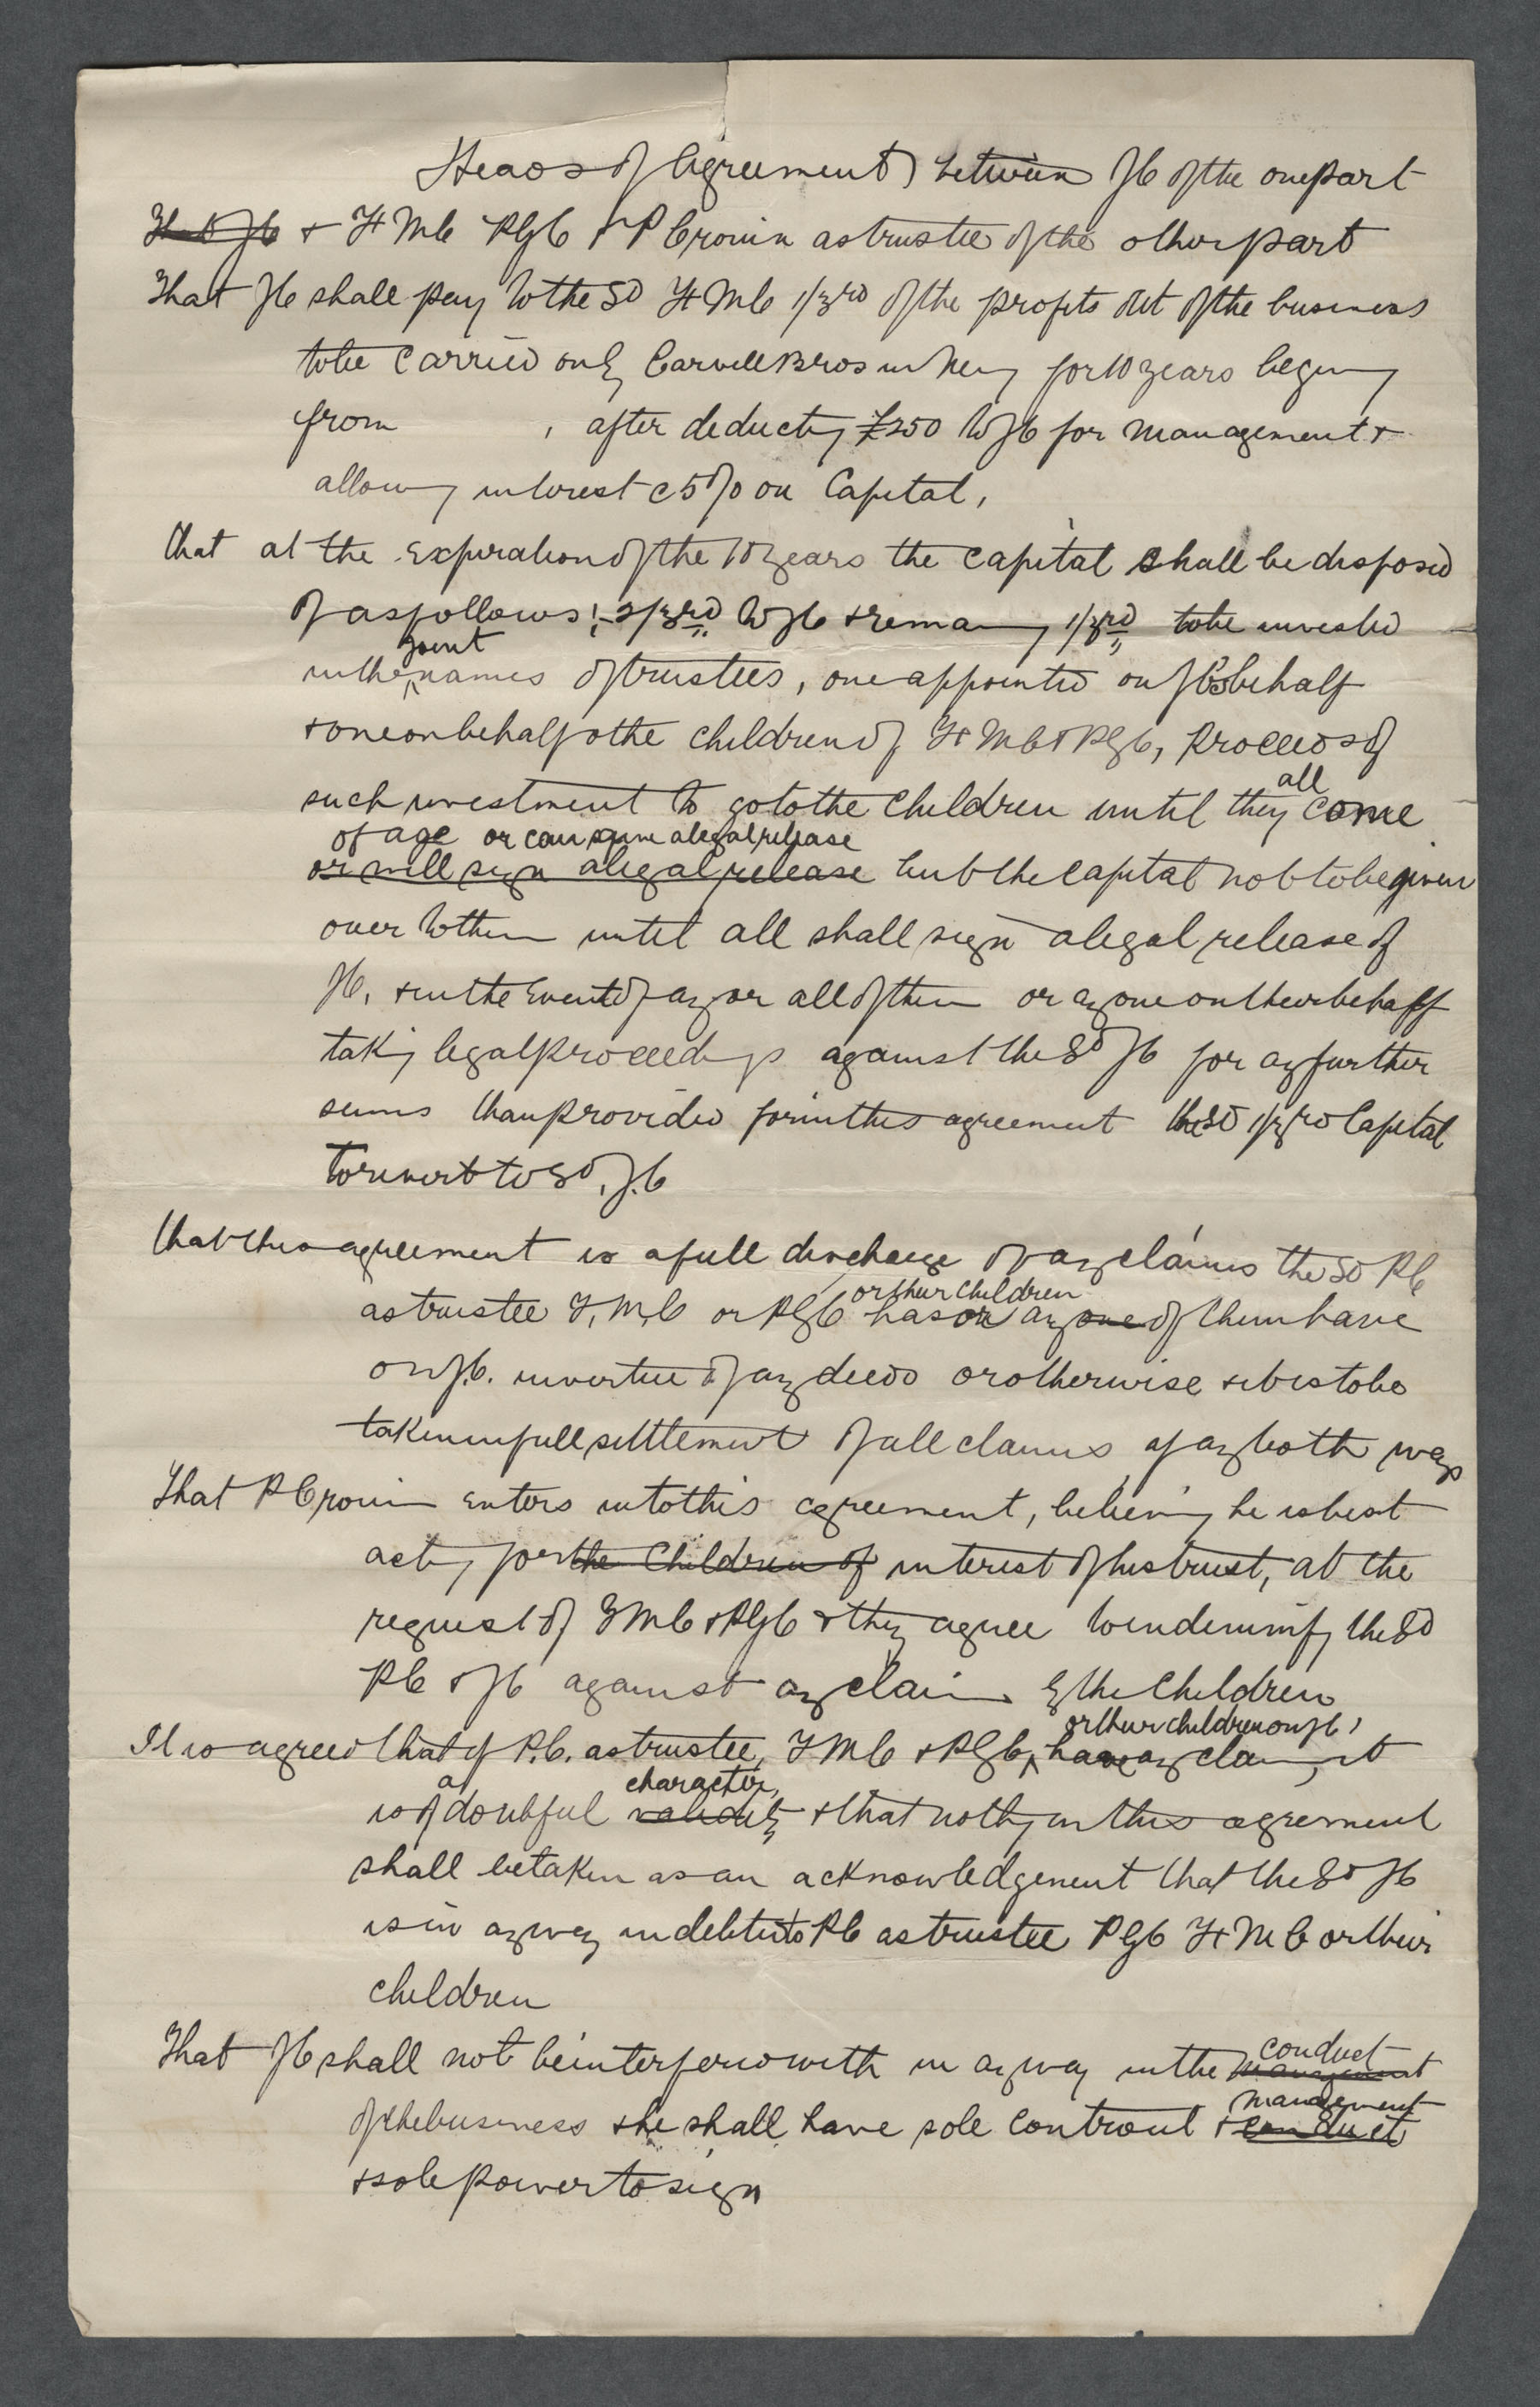 Heads of Agreement between JC of the one part
That JC & F M C P G C & P Cronin as trustee of the other part
That JC shall pay to the sd F M C 1/3rd of the profits net of the business
to be carried on by Carvell Bros in Newry for 10 years beging
from , after deducting £250 to JC for management &
allowing interest @ 5% on Capital,
that at the expiration of the 10 years the capital shall be disposed
of as follows :- 2/3rd to JC & remaing 1/3rd to be invested
joint
in the names of trustees, one appointed on JC's behalf
& one on behalf o the children of F M C & P G C, Proceeds of
all
such investment to go to the children until they come
of age or can give a legal release
or will sign a legal release but the capital not to be given
over to them until all shall sign a legal release of
JC, & in the event of any or all of them or any one on their behalf
taking legal proceedings against the sd JC for any further
sums than provided for in this agreement the sd 1/3rd Capital
to revert to sd. J.C
that this agreement is a full discharge of any claims the sd P C
or their children
as trustee F. M. C or P G C has or any one of them have
on J.C. in virtue of any deeds or otherwise & it is to be
taken in full settlement of all claims if any both ways
That P Cronin enters into this agreement, believing he is best
acting for the children of interest of his trust, at the
request of F M C & P G C & they agree to indemnify the sd
P C & JC against any claim by the children
or their children on JC,
It is agreed that if P. C. as trustee, F M C & P G C, have any claim, it
a character,
is of doubtful validity & that nothing in this agreement
shall be taken as an acknowledgement that the sd JC
is in any way indebted to P C as trustee P G C F M C or their
children
conduct
That JC shall not be interfered with in any way in the management
management
of the business & he shall have sole controul & conduct
& sole power to sign